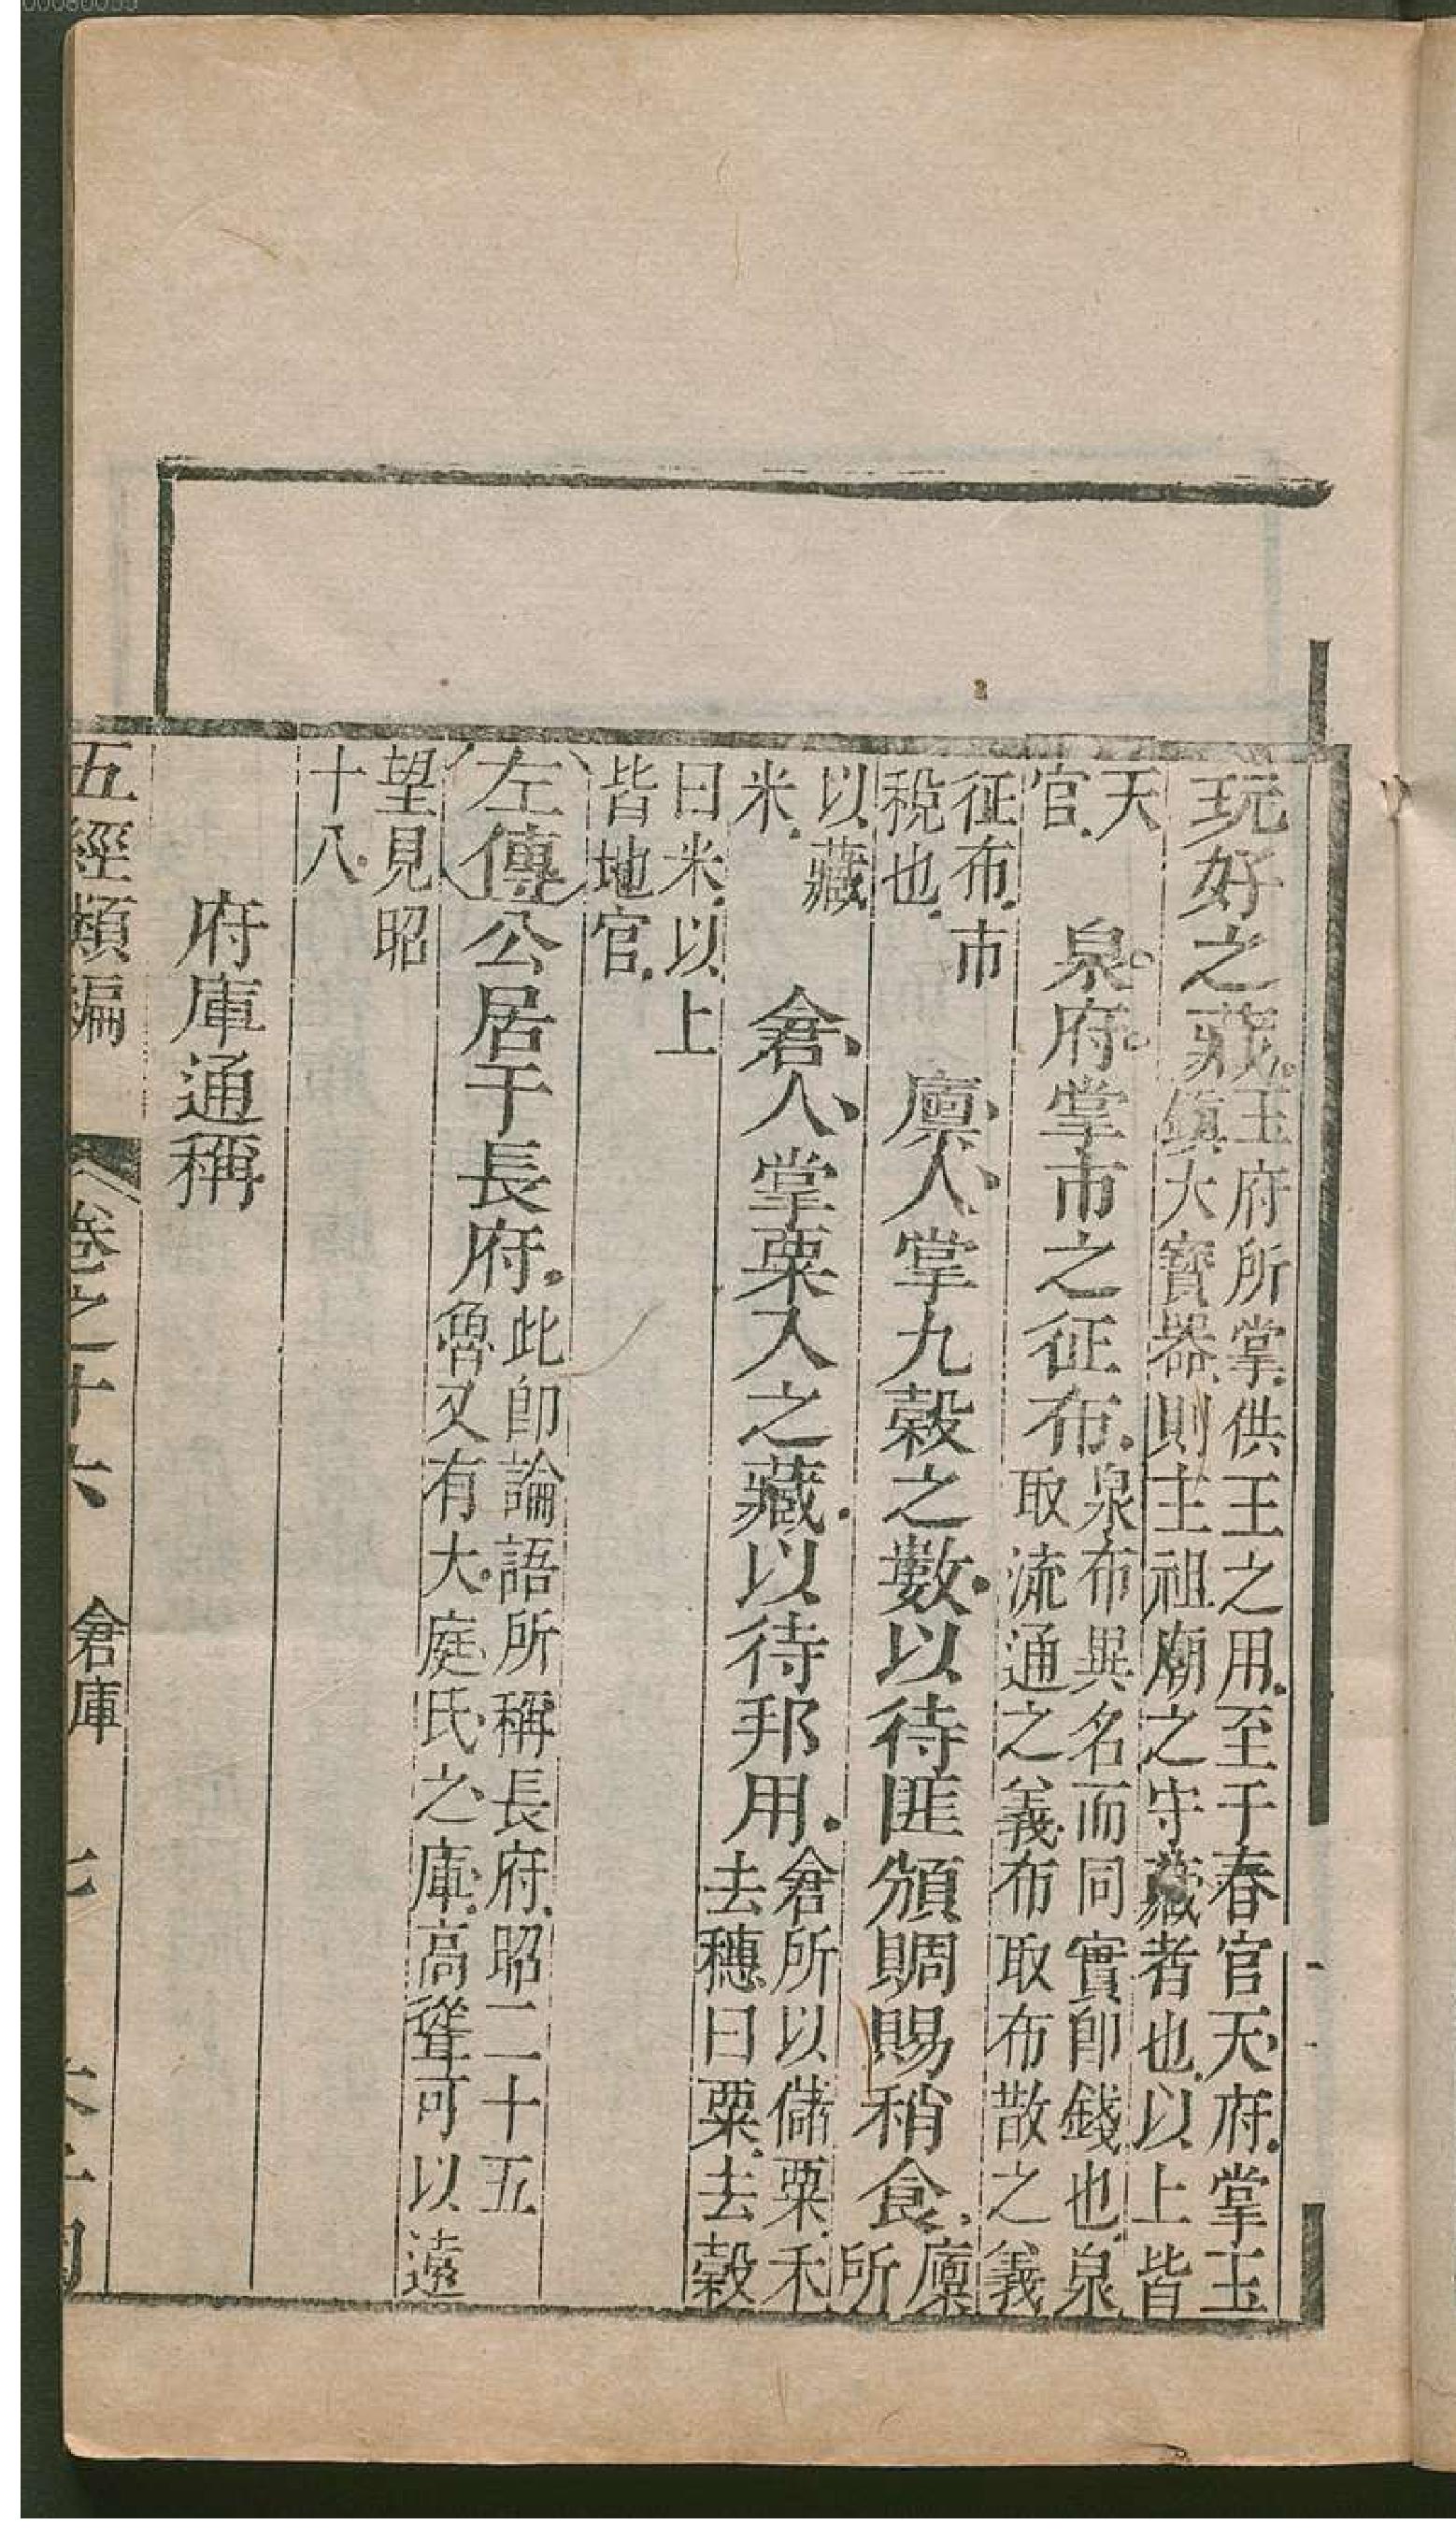 玩好之藏玉府所掌供王之用至于春官天府掌玉鎮大寶器則主祖廟之守藏者也以上皆
天官 泉府掌市之征布泉布異名而同實卽錢也泉取流通之義布取布散之義
征布市稅也 廩人掌九穀之數以待匪頒賙賜稍食廩所
以藏米 倉人掌粟入之藏以待邦用倉所以儲粟禾去穗曰粟去穀
曰米以上皆地官
左傳公居于長府此卽論語所稱長府昭二十五魯又有大庭氏之庫高聳可以遠
望見昭十八
府庫通稱
五經類編 卷之十六 倉庫
00080055